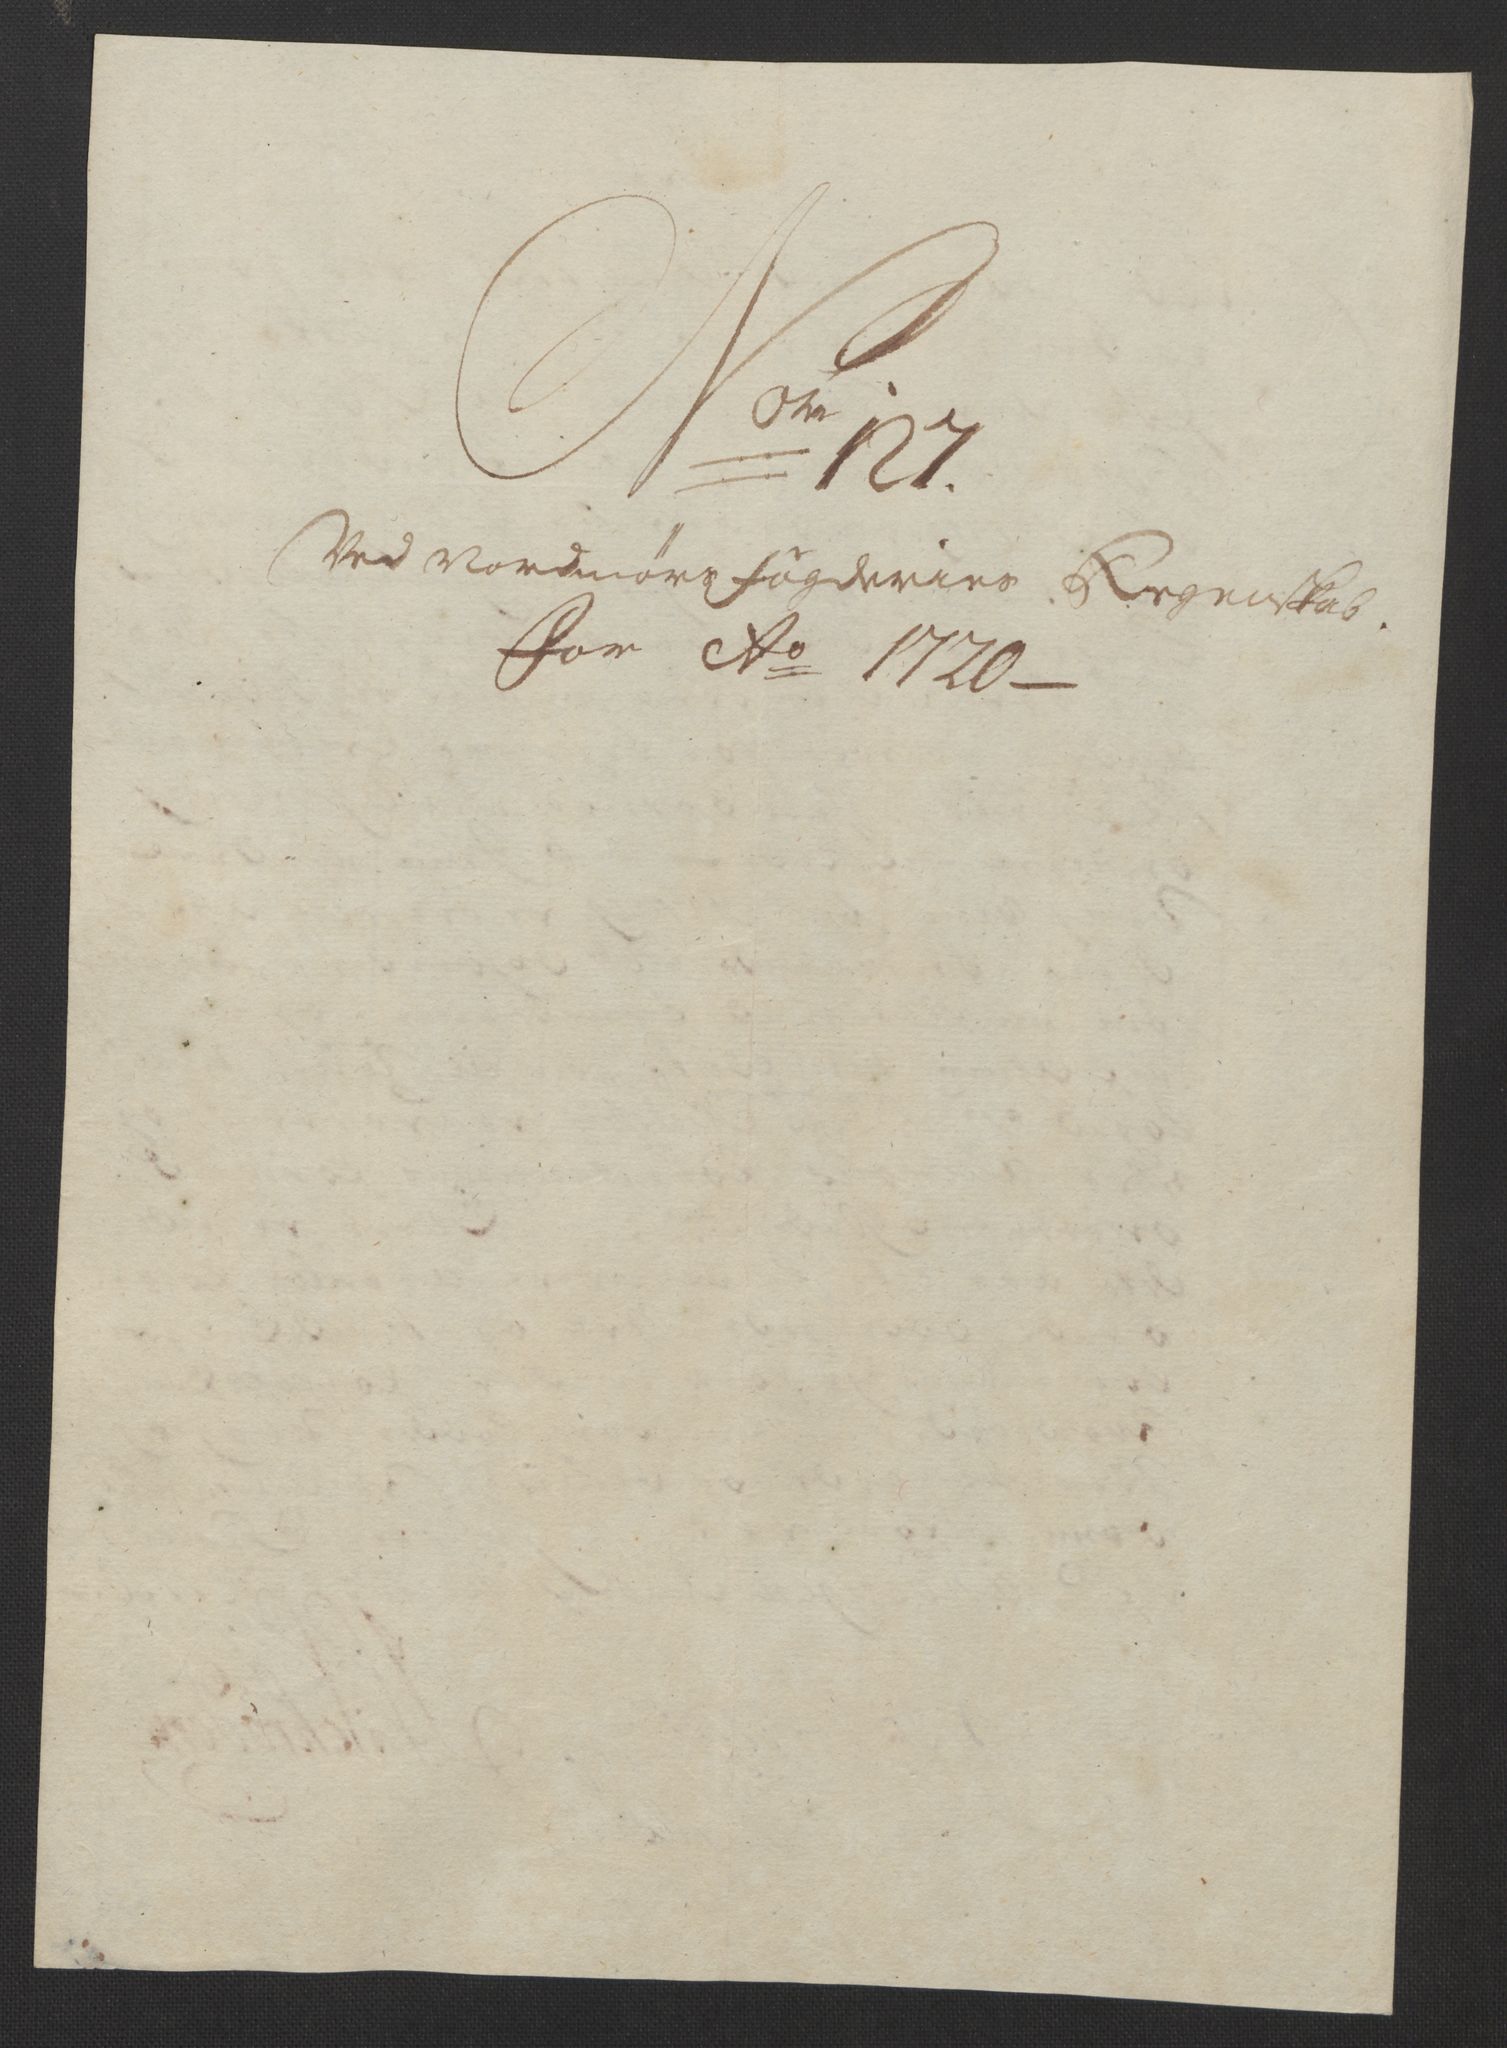 No 127.
Ved Nordmörs fögderies Regenskab.
for Ao 1720